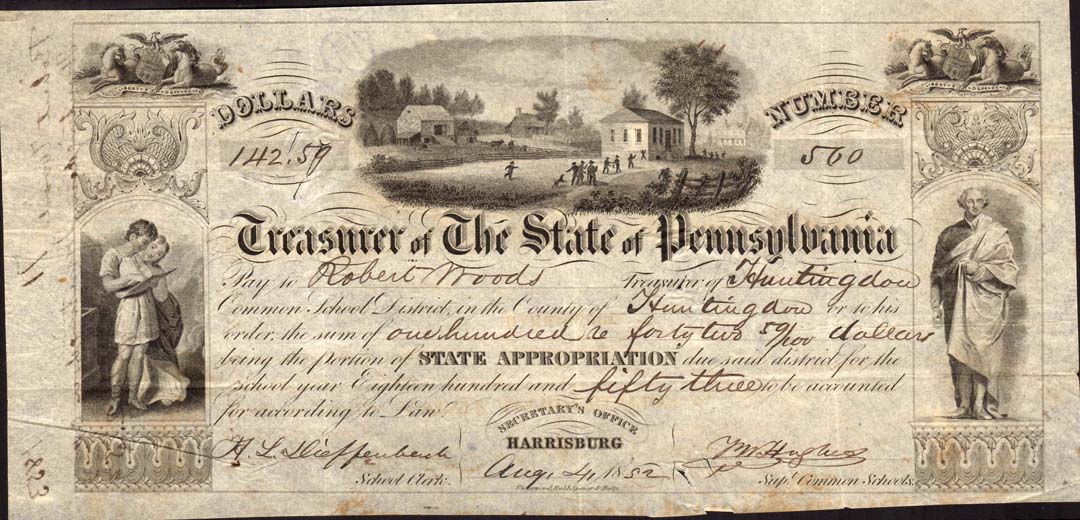 DOLLARS
NUMBER
142.59
560
Treasurer of The State of Pennsylvania
Pay to Robert Woods Treasurer of Huntingdon
Common School District, in the County of Huntingdon or to his
order, the sum of one hundred & forty two 59/100 dollars
being the portion of STATE APPROPRIATION due said district for the
school year Eighteen hundred and fifty three to be accounted
for according to Law.
SECRETARY'S OFFICE
HARRISBURG
Aug. 4, 1852
H. L. Dieffenbach
School Clerk.
F. W. Hughes
Supt. Common Schools.